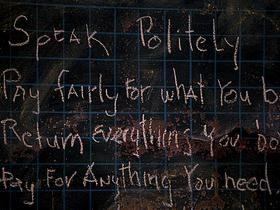 Speak Politely
Pay fairly for what You b
Return everything You bo
Pay For Anything You need